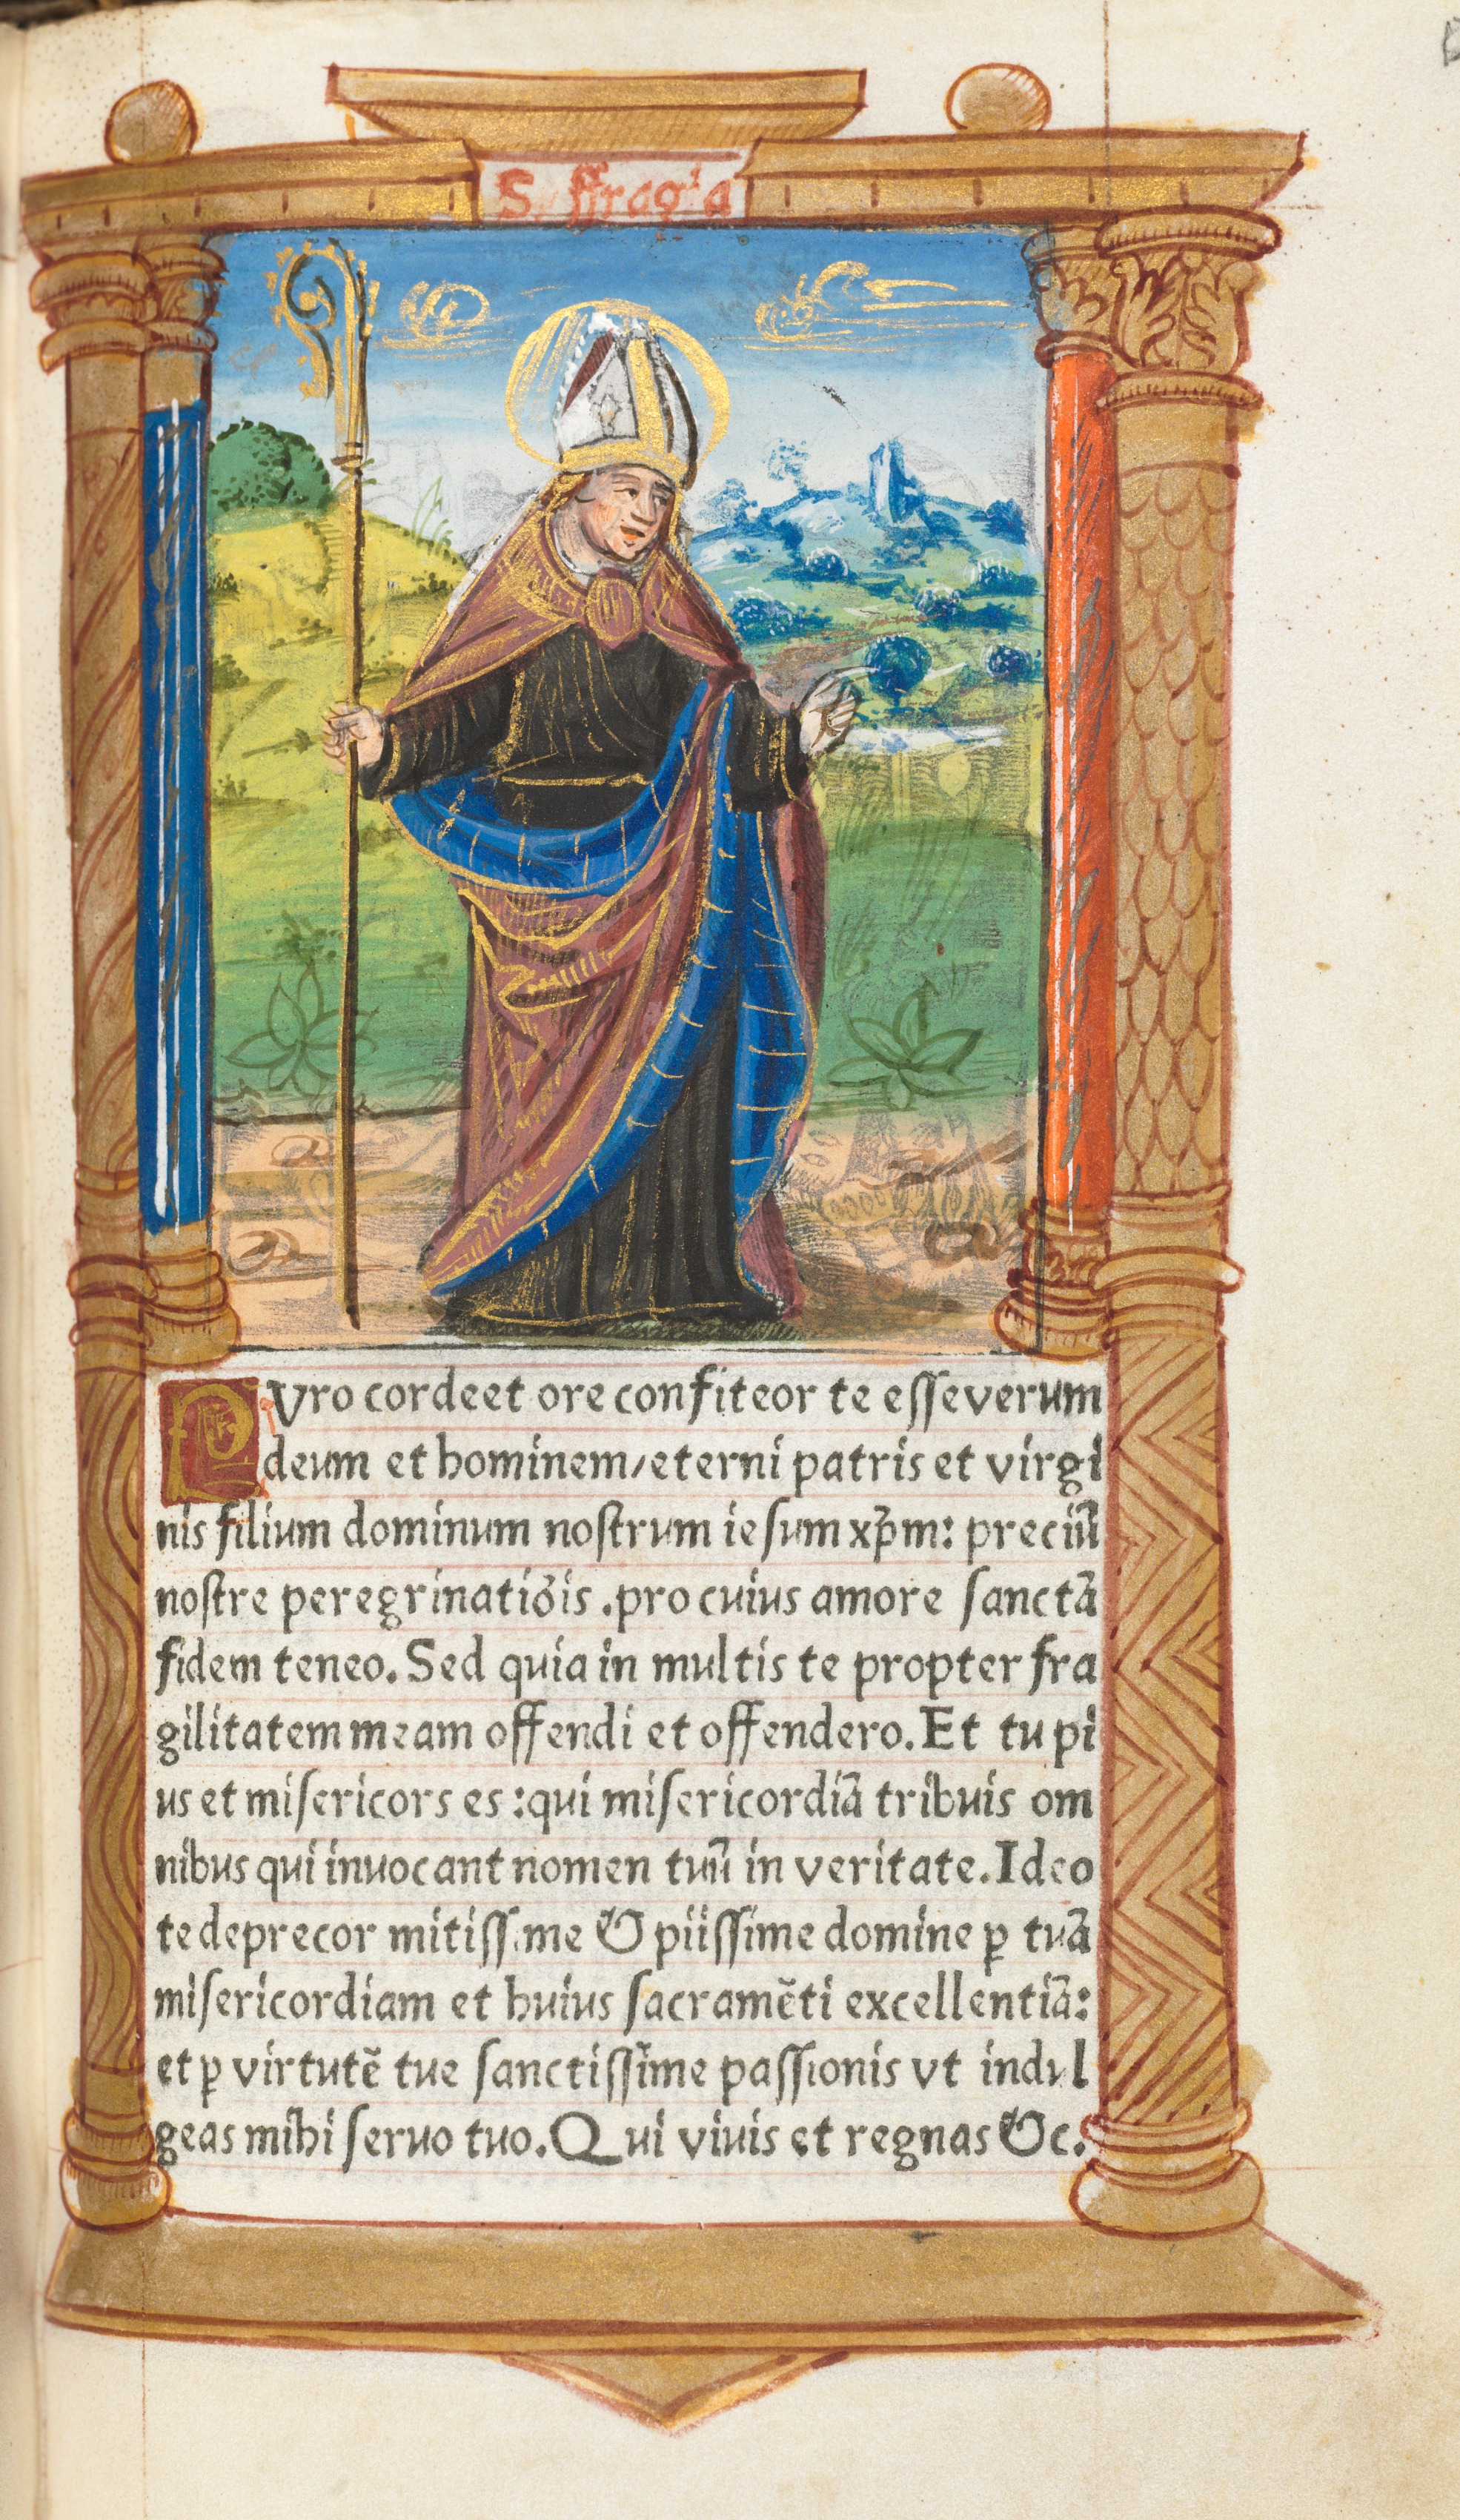 Suffragia
PVro corde et ore confiteor te esse verum
deum et hominem/eterni patris et virgi
nis filium dominum nostrum iesum xp̄m: preciū
nostre peregrinatiōis .pro cuius amore sanctā
fidem teneo. Sed quia in multis te propter fra
gilitatem meam offendi et offendero. Et tu pi
us et misericors es :qui misericordiā tribuis om
nibus qui inuocant nomen tuū in veritate. Ideo
te deprecor mitissime & piissime domine ꝑ tuā
misericordiam et huius sacramēti excellentiā:
et ꝑ virtutē tue sanctissime passionis vt indul
geas mihi seruo tuo. Qui viuis et regnas &c.